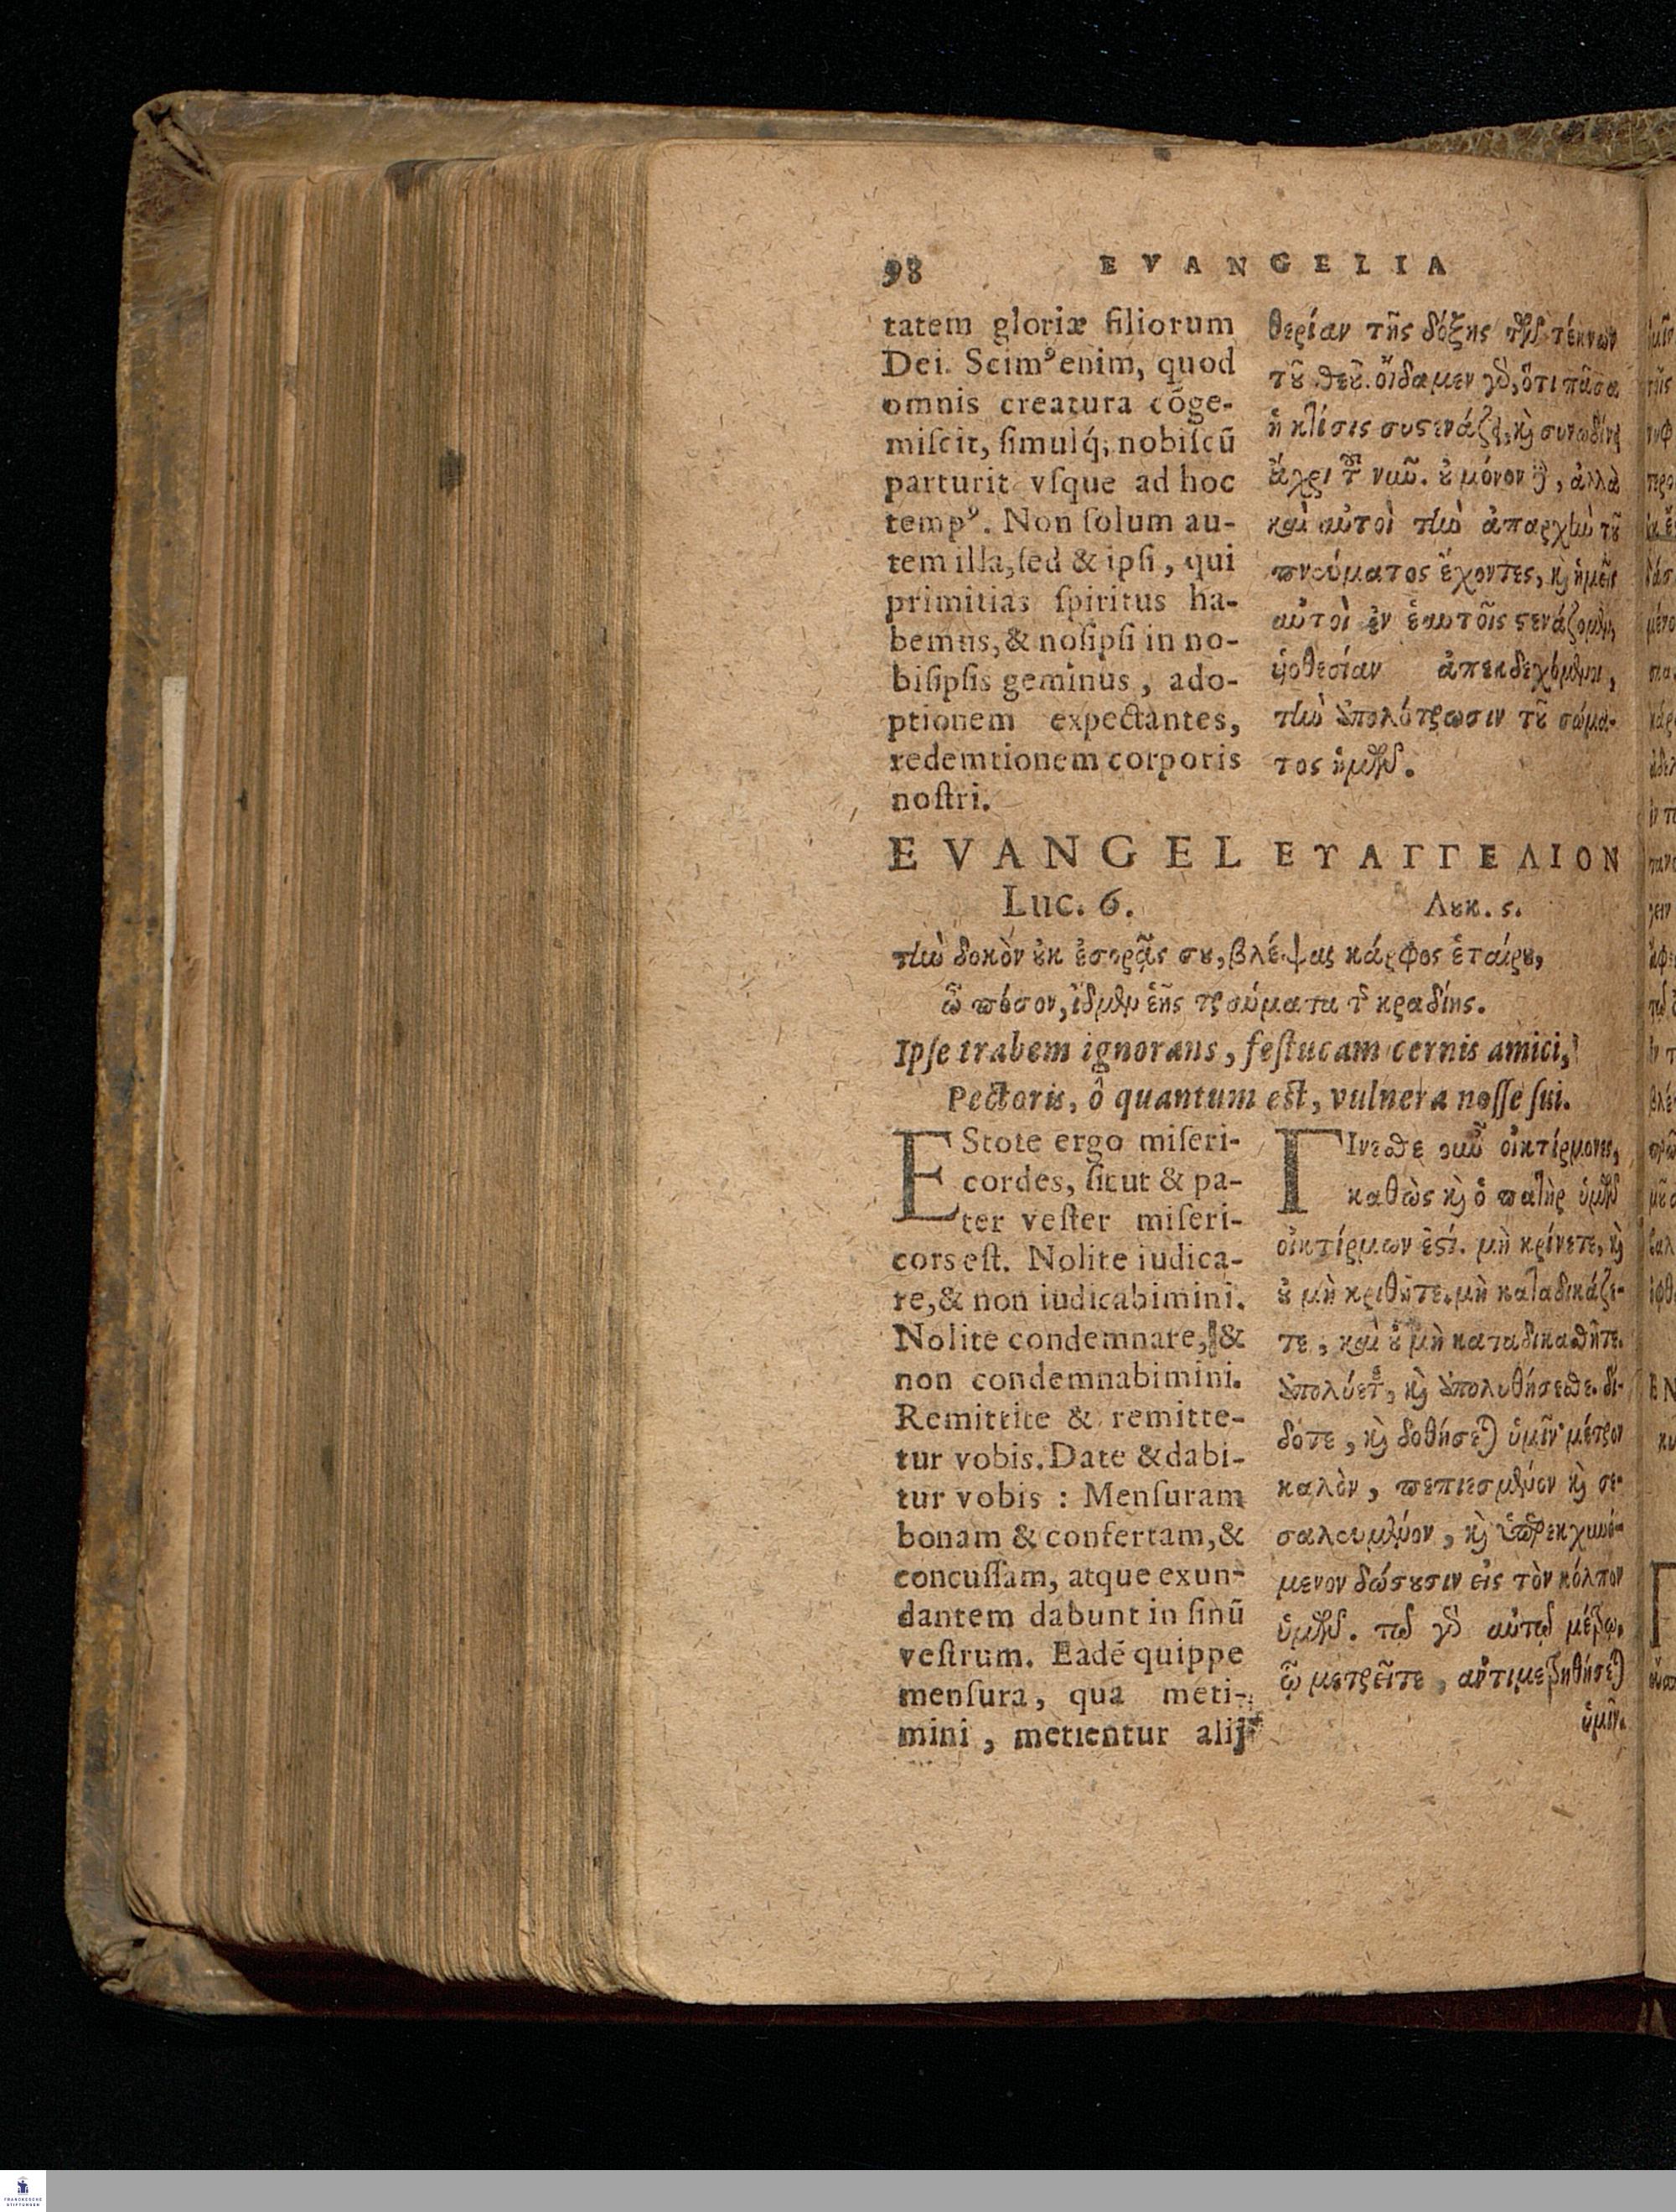 98 EVANGELIA
tatem gloriæ filiorum
Dei. Scimꝰ enim, quod
omnis creatura cõge-
miſcit, ſimulq́; nobiſcũ
parturit vſque ad hoc
tempꝰ. Non ſolum au-
tem illa, ſed & ipſi, qui
primitias ſpiritus ha-
bemus, & noſipſi in no-
biſipſis geminus, ado-
ptionem expectantes,
redemtionem corporis
noſtri.
θερίαν τῆς δόξης τῶν τέκνων
τȣ͂ θεȣ͂. οἴδαμεν γὸ, ὅτι πᾶσα
ἡ κτίσις συστενάζει, κỳ συνωδίνει
ἄχρι τȣ͂ νιῦ. ȣ̓ μόνον δὲ, ἀλλὰ
καὶ αὐτοὶ τὴν ἀπαρχὴν τȣ͂
πνεύματος ἔχοντες, κỳ ἡμεῖς
αὐτοὶ ἐν ἑαυτοῖς στενάζομεν,
ὑοθεσίαν ἀπεκδεχόμενοι,
τὴν ἀπολύτρωσιν τȣ͂ σώμα-
τος ἡμῶν.
EVANGEL
Luc. 6.
ΕΥΑΓΓΕΛΙΟΝ
Λȣκ. ς.
τὴν δοκὸν ȣ̓κ ἐσορᾷς σȣ, βλέψας κάρφος ἑταίρȣ,
ὢ πόσον, ἴδμεν ἑῆς τραύματα τ κραδίης.
Ipſe trabem ignorans, feſtucam cernis amici,
Pectoris, ô quantum eſt, vulnera noſſe ſui.
EStote ergo miſeri-
cordes, ſicut & pa-
ter veſter miſeri-
cors eſt. Nolite iudica-
re, & non iudicabimini.
Nolite condemnare, &
non condemnabimini.
Remittite & remitte-
tur vobis. Date & dabi-
tur vobis : Menſuram
bonam & confertam, &
concuſſam, atque exun-
dantem dabunt in ſinũ
veſtrum. Eadẽ quippe
menſura, qua meti-
mini, metientur alij
ΓΙνεσθε οιῦ οἰκτίρμονες,
καθὼς κỳ ὁ πατὴρ ὑμῶν
οἰκτίρμων ἐστί. μὴ κρίνετε, κỳ
ȣ̓ μὴ κριθῆτε. μὴ καταδικάζε-
τε, καὶ ȣ̓ μὴ καταδικασθῆτε.
ἀπολύετε, κỳ ἀπολυθήσεσθε. δί-
δοτε, κỳ δοθήσεται ὑμῖν· μέτρον
καλὸν, πεπιεσμένον κỳ σε-
σαλευμένον, κỳ ὑπερεκχυνό-
μενον δώσȣσιν εἰς τὸν κόλπον
ὑμῶν. τῷ γὸ αὐτῷ μέτρῳ,
ᾧ μετρεῖτε, ἀντιμετρηθήσεται
ὑμῖν.